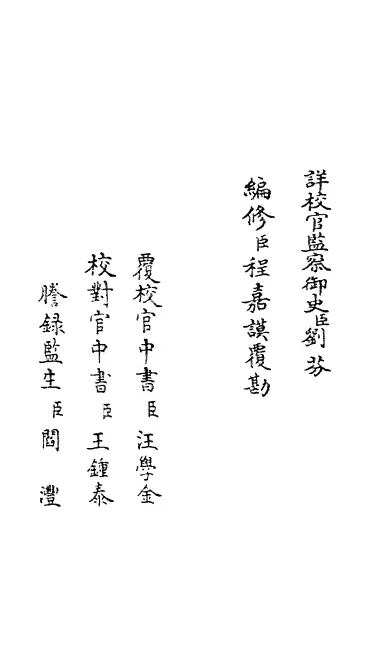 詳校官監察御史臣劉芬
編修臣程嘉謨覆勘
覆校官中書臣汪學金
校對官中書臣王鍾泰
謄録監生臣閻灃